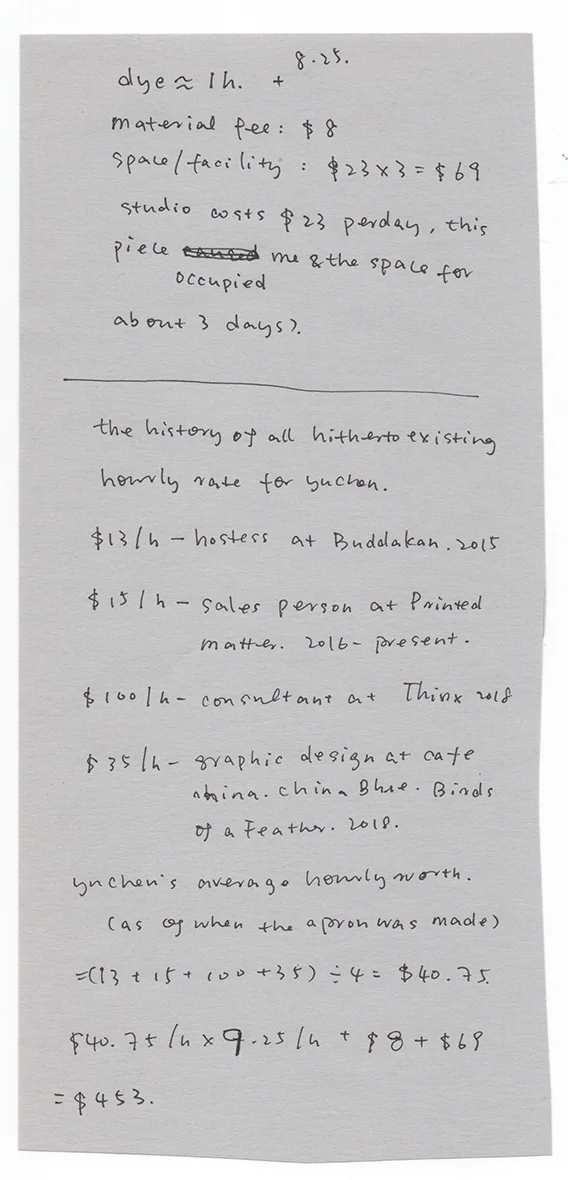 8.25.
dye ≈ 1h. +
material fee: $8
space/facility : $23×3 = $69
studio costs $23 perday, this
piece me & the space for
occupied
about 3 days).
the history of all hitherto existing
hourly rate for yuchen.
$13/h - hostess at Buddakan. 2015
$15/h - sales person at Printed
matter. 2016 - present.
$100/h - consultant at Thinx 2018
$35/h - graphic design at cafe
china. China Blue. Birds
of a Feather. 2018.
yuchen's average hourly worth.
(as of when the apron was made)
=(13 + 15 + 100 + 35) ÷ 4 = $40.75.
$40.75/h × 9.25/h + $8 + $69
= $453.